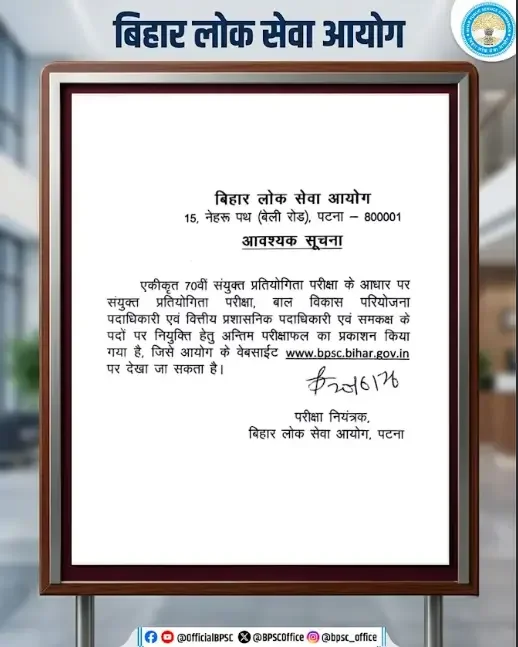 बिहार लोक सेवा आयोग
बिहार लोक सेवा आयोग
15, नेहरू पथ (बेली रोड), पटना – 800001
आवश्यक सूचना
एकीकृत 70वीं संयुक्त प्रतियोगिता परीक्षा के आधार पर
संयुक्त प्रतियोगिता परीक्षा, बाल विकास परियोजना
पदाधिकारी एवं वित्तीय प्रशासनिक पदाधिकारी एवं समकक्ष के
पदों पर नियुक्ति हेतु अन्तिम परीक्षाफल का प्रकाशन किया
गया है, जिसे आयोग के वेबसाईट www.bpsc.bihar.gov.in
पर देखा जा सकता है।
परीक्षा नियंत्रक,
बिहार लोक सेवा आयोग, पटना
@OfficialBPSC @BPSCOffice @bpsc_office